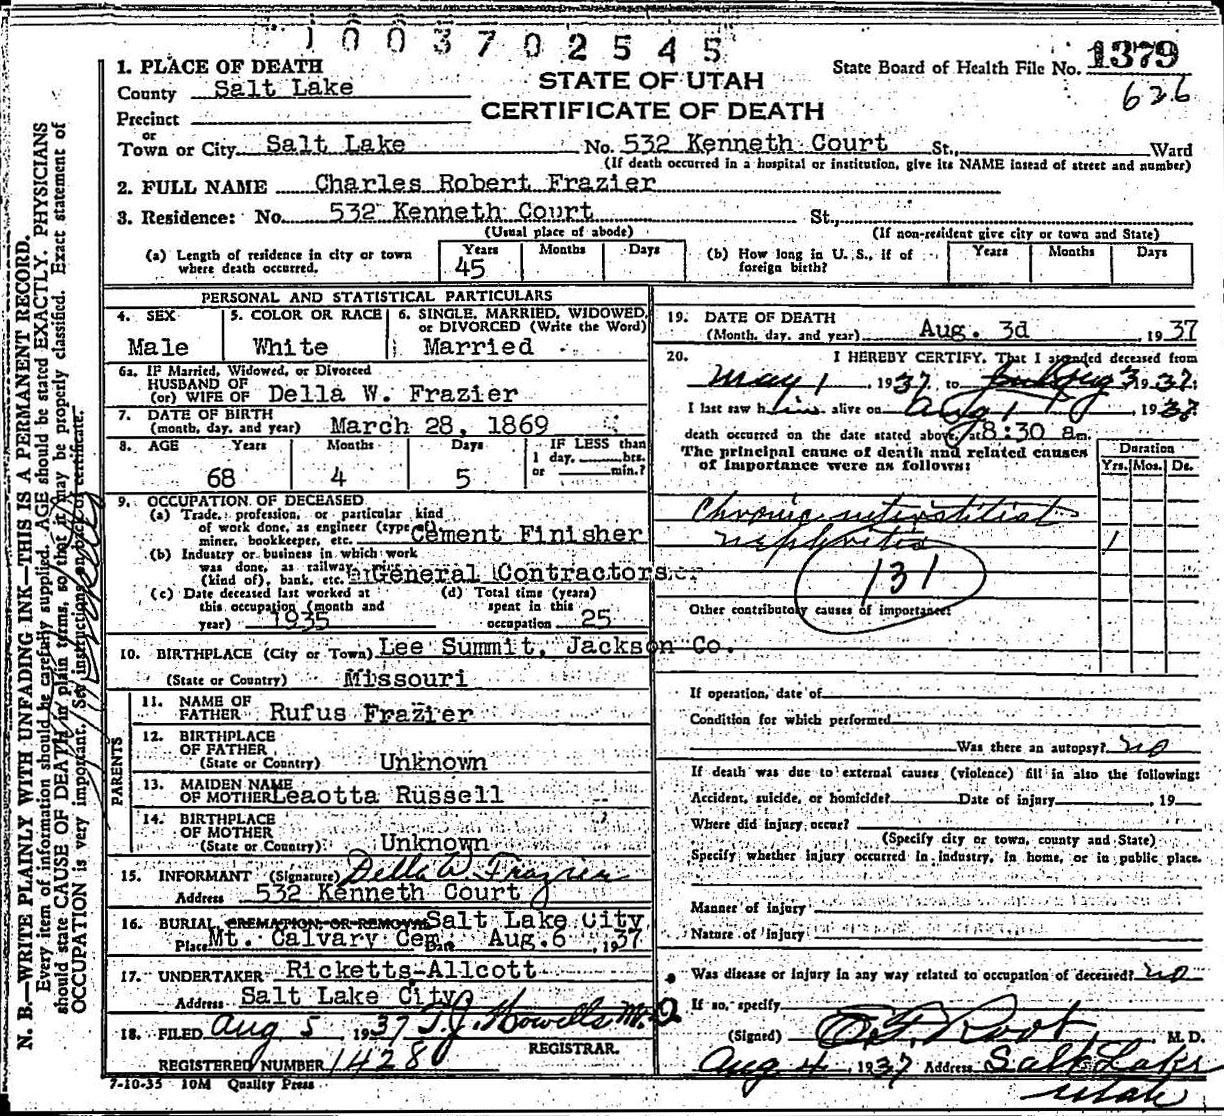 1003702545
1. PLACE OF DEATH
STATE OF UTAH
CERTIFICATE OF DEATH
State Board of Health File No. 1379
626
County Salt Lake
Precinct
or
Town or City Salt Lake No. 532 Kenneth Court St., Ward
(If death occurred in a hospital or institution, give its NAME insead of street and number)
2. FULL NAME Charles Robert Frazier
3. Residence: No. 532 Kenneth Court St.,
(Usual place of abode) (If non-resident give city or town and State)
(a) Length of residence in city or town where death occurred. Years 45 Months Days
(b) How long in U. S., if of foreign birth? Years Months Days
PERSONAL AND STATISTICAL PARTICULARS
4. SEX Male
5. COLOR OR RACE White
6. SINGLE, MARRIED, WIDOWED, or DIVORCED (Write the Word) Married
6a. IF Married, Widowed, or Divorced
HUSBAND OF
(or) WIFE OF Della W. Frazier
7. DATE OF BIRTH
(month, day, and year) March 28, 1869
8. AGE Years 68 Months 4 Days 5 IF LESS than 1 day, hrs. or min.?
9. OCCUPATION OF DECEASED
(a) Trade, profession, or particular kind
of work done, as engineer (type of)
miner, bookkeeper, etc. Cement Finisher
(b) Industry or business in which work
was done, as railway
(kind of), bank, etc. General Contractors
(c) Date deceased last worked at
this occupation (month and
year) 1935
(d) Total time (years)
spent in this
occupation 25
10. BIRTHPLACE (City or Town) Lee Summit, Jackson Co.
(State or Country) Missouri
PARENTS
11. NAME OF
FATHER Rufus Frazier
12. BIRTHPLACE
OF FATHER
(State or Country) Unknown
13. MAIDEN NAME
OF MOTHER Leaotta Russell
14. BIRTHPLACE
OF MOTHER
(State or Country) Unknown
15. INFORMANT (Signature) Della W Frazier
Address 532 Kenneth Court
16. BURIAL CREMATION OR REMOVAL Salt Lake City
Place Mt. Calvary Cem. Date Aug. 6, 1937
17. UNDERTAKER Ricketts-Allcott
Address Salt Lake City
18. FILED Aug 5, 1937 T.J. Howells M.D
REGISTRAR.
REGISTERED NUMBER 1428
7-10-35 10M Quality Press
19. DATE OF DEATH
(Month, day, and year) Aug. 3d, 1937
20. I HEREBY CERTIFY, That I attended deceased from
May 1, 1937, to Aug 3 1937;
I last saw him alive on Aug 1, 1937
death occurred on the date stated above, at 8:30 a m.
The principal cause of death and related causes
of importance were as follows:
Duration
Yrs. Mos. Ds.
Chronic interstitial
nephritis 1
131
Other contributory causes of importance:
If operation, date of
Condition for which performed
Was there an autopsy? no
If death was due to external causes (violence) fill in also the following:
Accident, suicide, or homicide? Date of injury , 19
Where did injury occur?
(Specify city or town, county and State)
Specify whether injury occurred in industry, in home, or in public place.
Manner of injury
Nature of injury
Was disease or injury in any way related to occupation of deceased? no
If so, specify
(Signed) Root, M. D.
Aug 4, 1937 Address Salt Lake
Utah
N. B.—WRITE PLAINLY WITH UNFADING INK—THIS IS A PERMANENT RECORD.
Every item of information should be carefully supplied. AGE should be stated EXACTLY. PHYSICIANS
should state CAUSE OF DEATH in plain terms, so that it may be properly classified. Exact statement of
OCCUPATION is very important. See instructions on back of certificate.